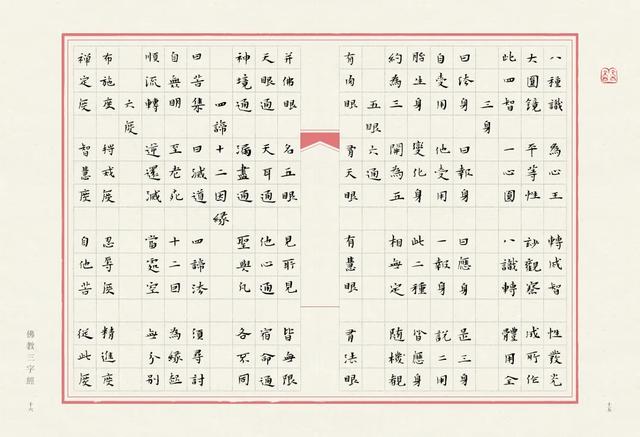 八種識 為心王 轉成智 性發光
大圓鏡 平等性 妙觀察 成所作
此四智 一心圓 八識轉 體用全
三身
曰法身 曰報身 曰應身 是三身
自受用 他受用 一報身 說二用
胎生身 變化身 此二種 皆應身
約為三 開為五 相無定 隨機覩
五眼六通
有肉眼 有天眼 有慧眼 有法眼
并佛眼 名五眼 見所見 皆無限
天眼通 天耳通 他心通 宿命通
神境通 漏盡通 聖與凡 各不同
四諦十二因緣
曰苦集 曰滅道 四諦法 須尋討
自無明 至老死 十二因 為緣起
順流轉 逆還滅 當處空 無分別
六度
布施度 持戒度 忍辱度 精進度
禪定度 智慧度 自他苦 從此度
佛教三字經
十六
十五